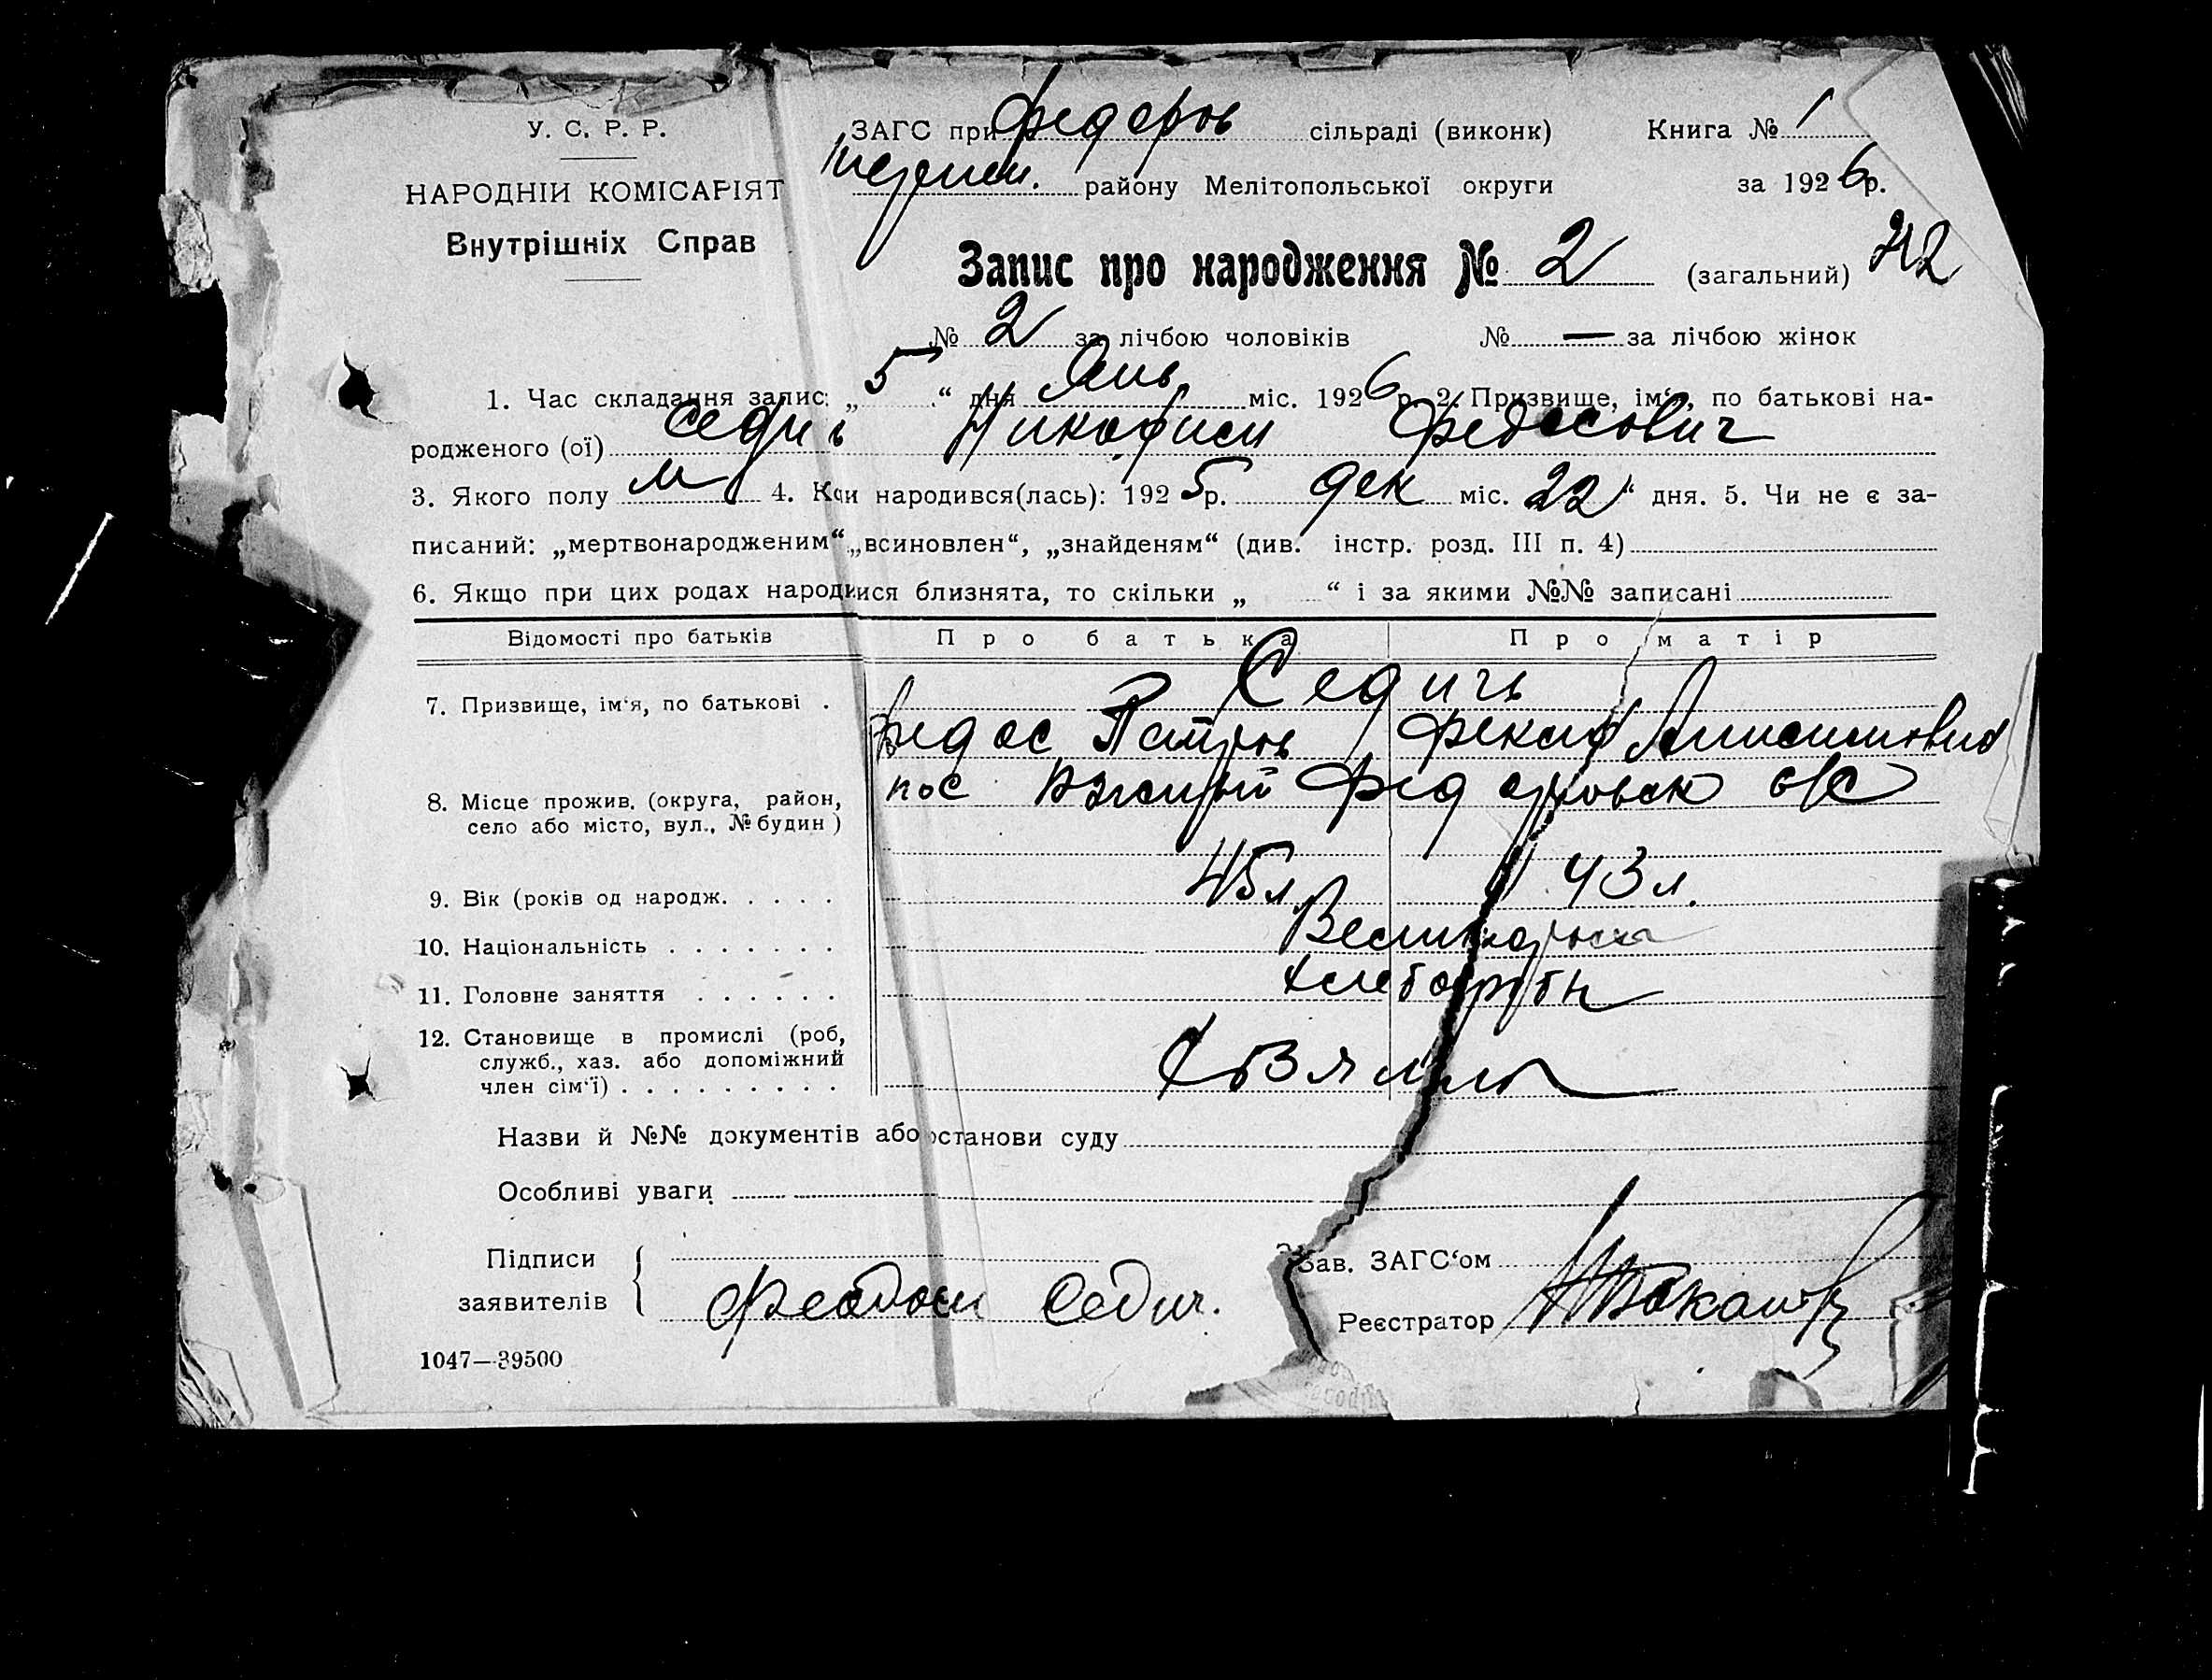 У. С. Р. Р.
НАРОДНІЙ КОМІСАРІЯТ
Внутрішніх Справ
ЗАГС при Федоров сільраді (виконк) Книга № 1
району Мелітопольської округи за 1926 р.
Запис про народження № 2 (загальний)
№ 2 за лічбою чоловіків № — за лічбою жінок
1. Час складання запис: „5“ дня Янв. міс. 1926 р. 2. Призвище, ім‘я, по батькові на-
родженого (ої) Седич Федосович
3. Якого полу м 4. Коли народився(лась): 1925 р. дек міс. 22“ дня. 5. Чи не є за-
писаний: „мертвонародженим“ „всиновлен“, „знайденям“ (див. інстр. розд. III п. 4)
6. Якщо при цих родах народилися близнята, то скільки „ “ і за якими №№ записані
Відомості про батьків Про батька Про матір
Седичь
7. Призвище, ім‘я, по батькові .
Федос Петров
8. Місце прожив. (округа, район,
село або місто, вул., № будин )
пос Федоровск с/с
9. Вік (років од народж. . . . . 45 л. 43 л.
10. Національність . . . . . . . Великоросы
11. Головне заняття . . . . . . хлебороб
12. Становище в промислі (роб,
служб., хаз. або допоміжний
член сім‘ї) . . . . . . . . .
Назви й №№ документів або останови суду
Особливі уваги
Підписи
заявителів
Феодоси Седич.
Зав. ЗАГС‘ом
Реєстратор
1047—39500